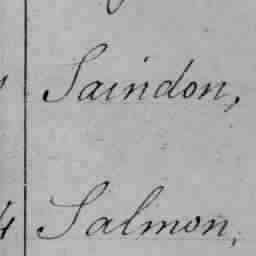 Saindon,
4 Salmon,